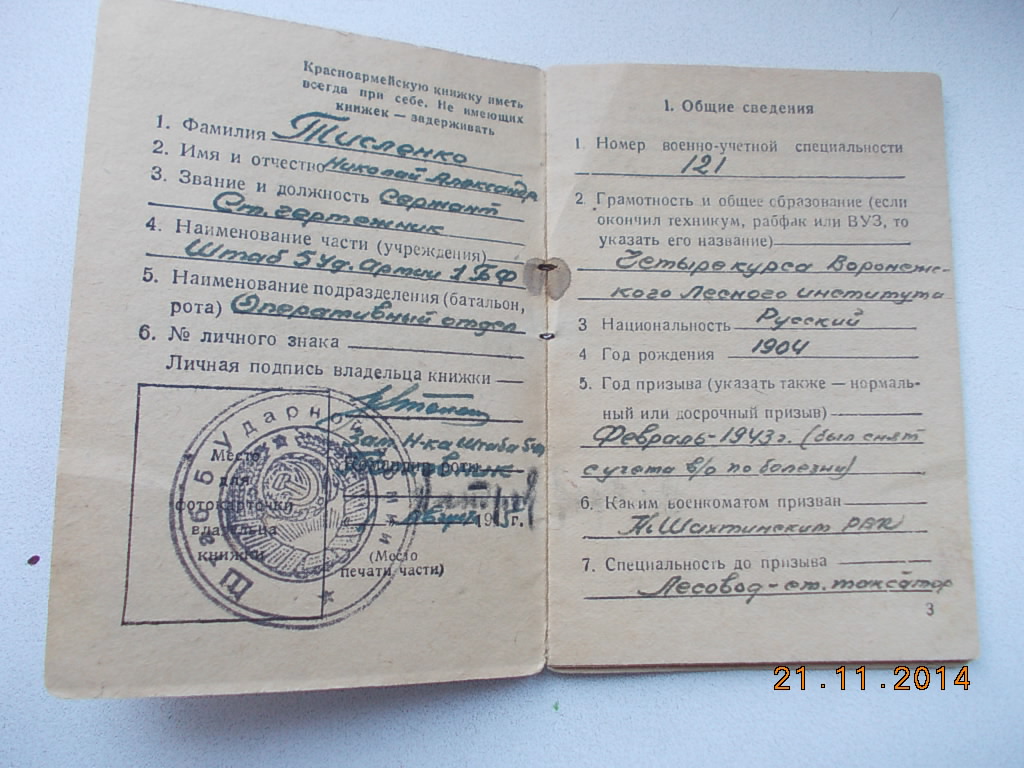 Красноармейскую книжку иметь
всегда при себе. Не имеющих
книжек — задерживать
1. Фамилия Тисленко
2. Имя и отчество Николай Александр
3. Звание и должность Сержант
Ст. чертежник
4. Наименование части (учреждения)
Штаб 5 Уд. Армии 1 БФ
5. Наименование подразделения (батальон,
рота) Оперативный отдел
6. № личного знака
Личная подпись владельца книжки
Зам. Н-ка Штаба 5 уд
Командир роты
194 г.
(Место
печати части)
Место
для
фотокарточки
владельца
книжки
Штаб 5 Ударной Армии
1. Общие сведения
1. Номер военно-учетной специальности
121
2. Грамотность и общее образование (если
окончил техникум, рабфак или ВУЗ, то
указать его название)
Четыре курса Воронежс-
кого Лесного института
3 Национальность Русский
4 Год рождения 1904
5. Год призыва (указать также — нормаль-
ный или досрочный призыв)
Февраль-1943 г. (был снят
с учета в/о по болезни)
6. Каким военкоматом призван
Н. Шахтинским РВК
7. Специальность до призыва
Лесовод - ст. таксатор
3
21.11.2014